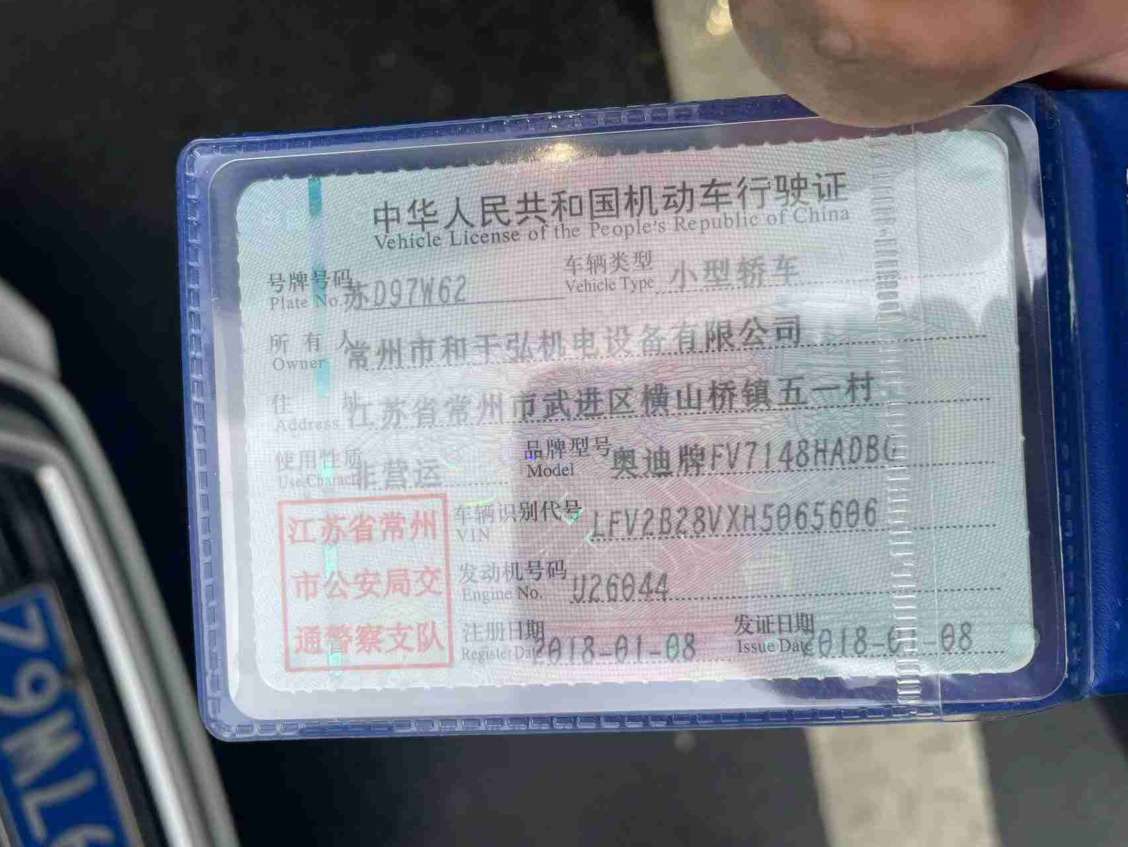 中华人民共和国机动车行驶证
Vehicle License of the People's Republic of China
号牌号码 Plate No. 苏D97W62 车辆类型 Vehicle Type 小型轿车
所有人 Owner 常州市和千弘机电设备有限公司
住址 Address 江苏省常州市武进区横山桥镇五一村
使用性质 Use Charact 非营运 品牌型号 Model 奥迪牌FV7148HADBG
车辆识别代号 VIN LFV2B28VXH5065606
发动机号码 Engine No. U26044
注册日期 Register Date 2018-01-08 发证日期 Issue Date 2018-01-08
江苏省常州
市公安局交
通警察支队